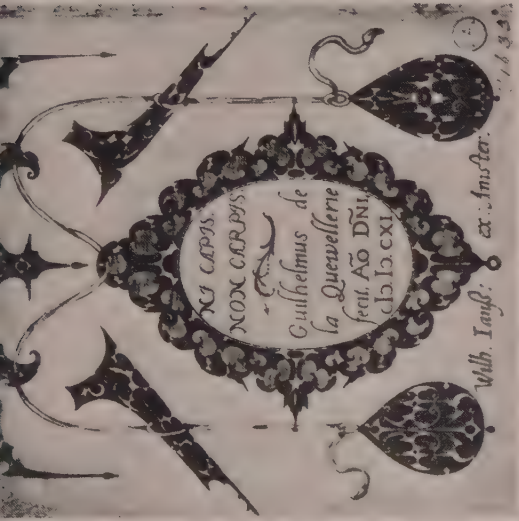 NI CAPIS.
NON CARPIS
Guilhelmus de
la Quewellerie
fecit. Aō DNI.
CIƆ.IƆ.CXI
Wilh. Ianß: ex: Amster: